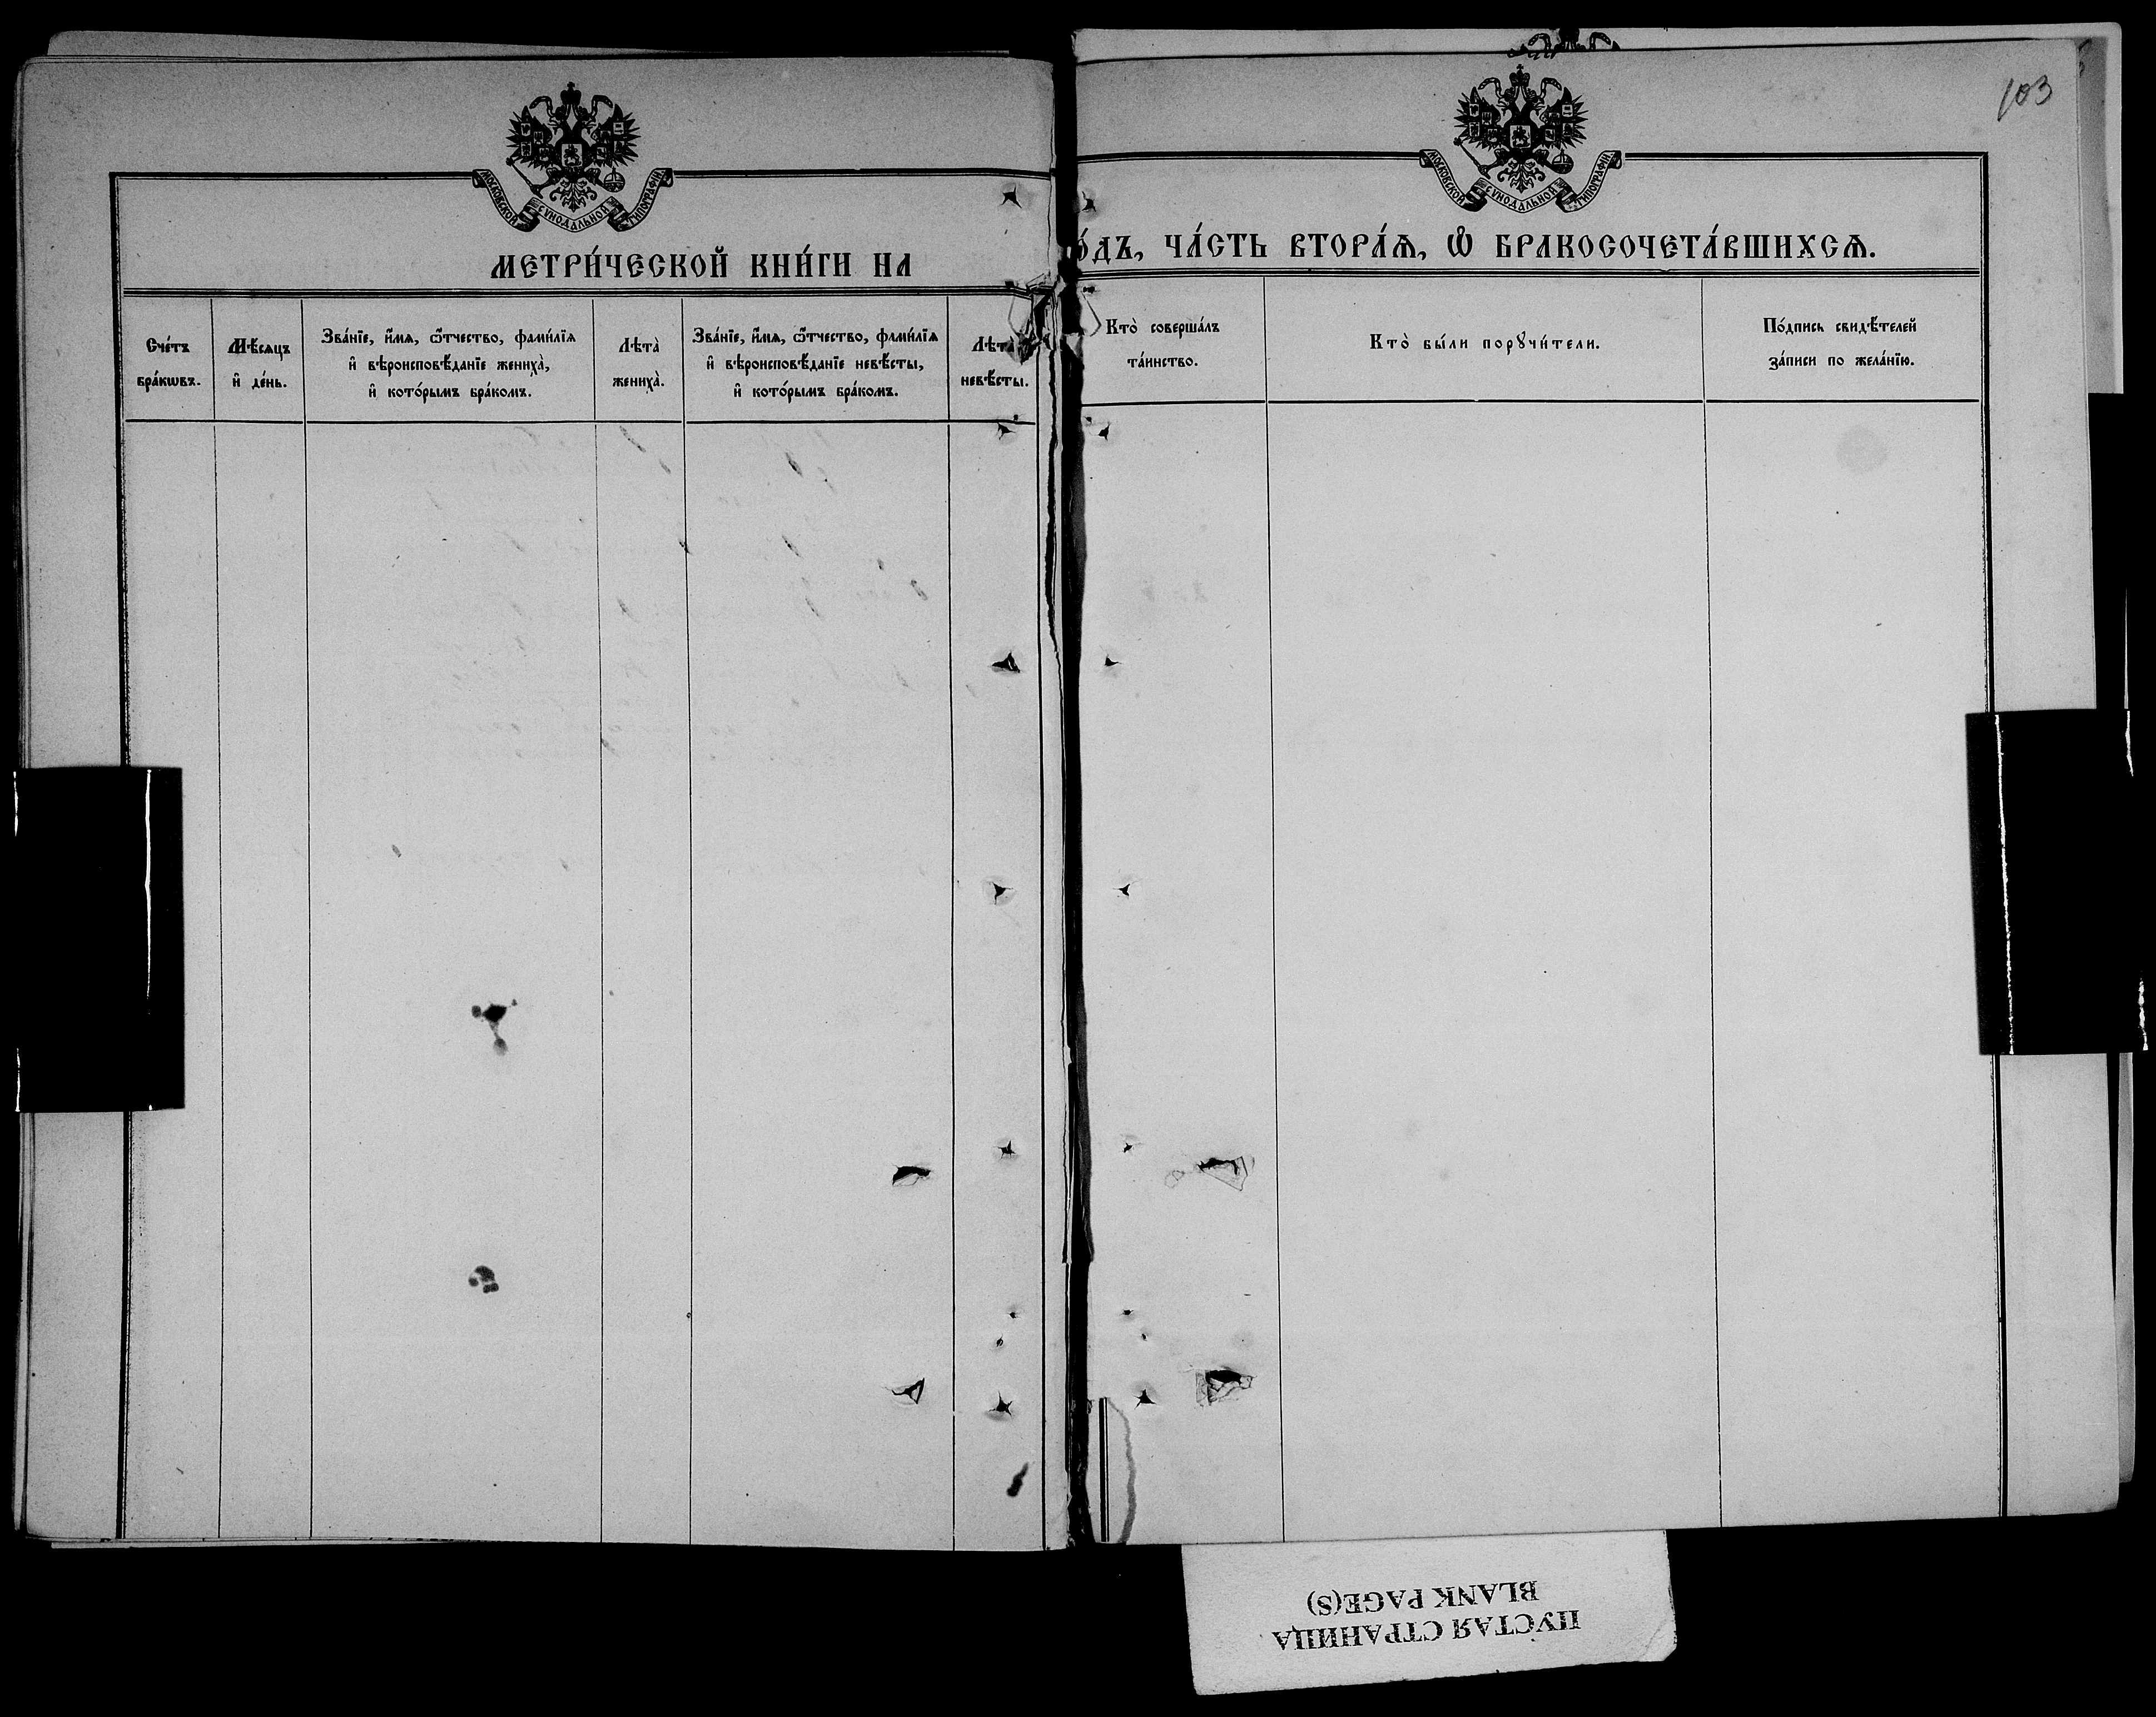 103
МОСКОВСКОЙ СѴНОДАЛЬНОЙ ТИПОГРАФІИ
МОСКОВСКОЙ СѴНОДАЛЬНОЙ ТИПОГРАФІИ
МЕТРИ́ЧЕСКОЙ КНИ́ГИ НА
О́ДЪ, ЧА́СТЬ ВТОРА́Ѧ, Ѽ БРАКОСОЧЕТА́ВШИХСѦ.
Сче́тъ
бра́кѡвъ.
Мѣ́сяцъ
и҆ де́нь.
Зва́нїе, и҆́мѧ, ѻ҆́тчество, фами́лїѧ
и҆ вѣроисповѣ́данїе жениха̀,
и҆ кото́рымъ бра́комъ.
Лѣта̀
жениха̀.
Зва́нїе, и҆́мѧ, ѻ҆́тчество, фами́лїѧ
и҆ вѣроисповѣ́данїе невѣ́сты,
и҆ кото́рымъ бра́комъ.
Лѣта̀
невѣ́сты.
Кто̀ соверша́лъ
та́инство.
Кто̀ бы́ли порꙋчи́тели.
По́дпись свидѣ́телей
за́писи по жела́нїю.
ПУСТАЯ СТРАНИЦА
BLANK PAGE(S)